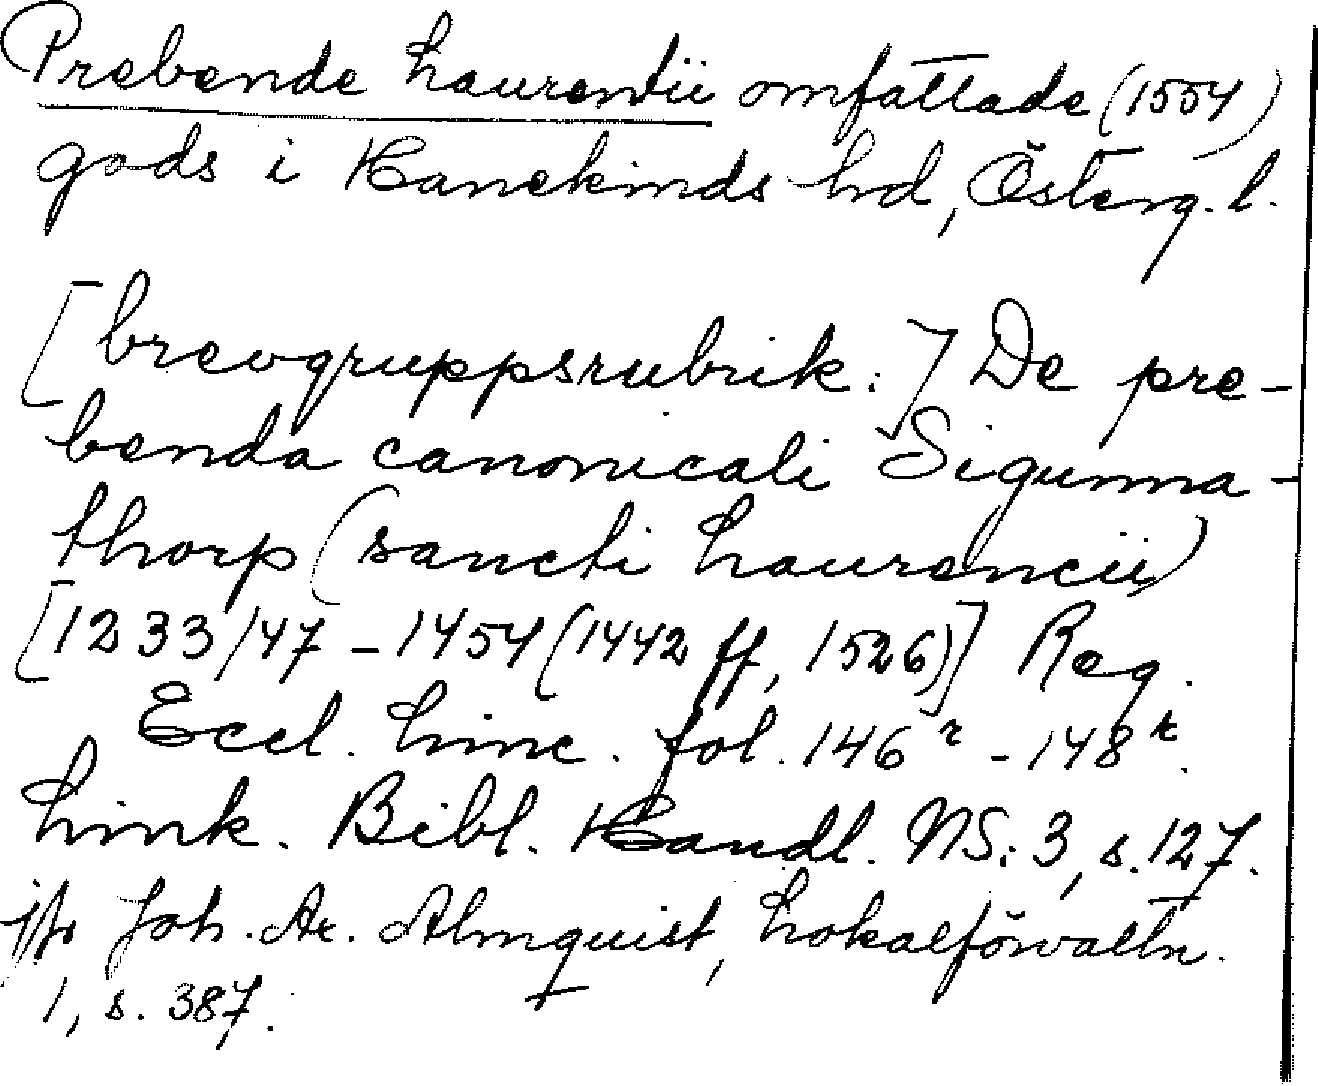 Prebende Laurentii omfattade (1554)
gods i Hanekinds hd, Österg. l.
[brevgruppsrubrik:] De pre-
benda canonicali Sigunna-
thorp (sancti Laurencii)
[1233/47 - 1454 (1442 ff, 1526)] Reg.
Eccl. Linc. fol. 146r - 148r.
Link. Bibl. Handl. NS: 3, s. 127.
jfr Joh. Ax. Almquist, Lokalförvaltn.
1, s. 387.